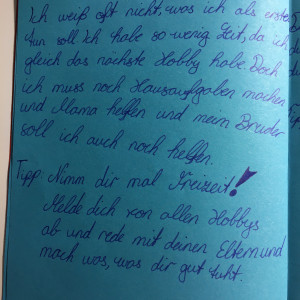 Ich weiß oft nicht, was ich als erstes
tun soll Ich habe so wenig Zeit, da ich
gleich das nächste Hobby habe. Doch
ich muss noch Hausaufgaben machen
und Mama helfen und mein Bruder
soll ich auch noch helfen.
Tipp: Nimm dir mal Freizeit!
Melde dich von allen Hobbys
ab und rede mit deinen Eltern und
mach was, was dir gut tuht.